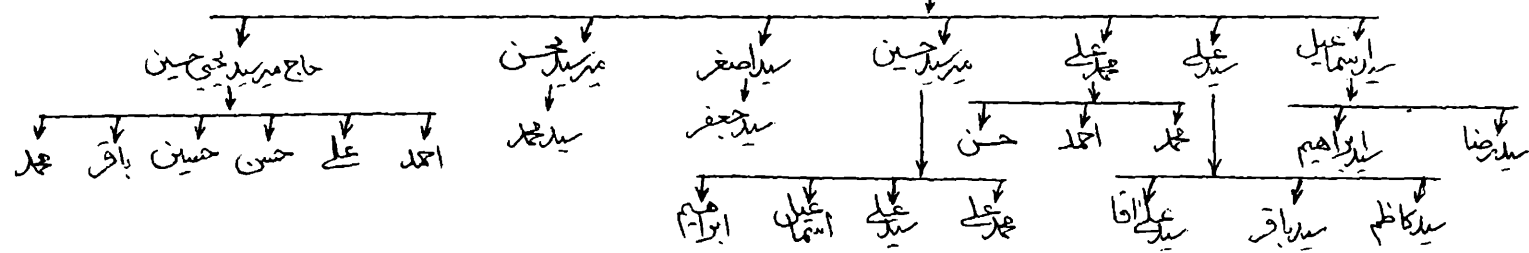 سید اسماعیل سید علی محمد علی میر سید حسین سید اصغر میر سید محسن حاج میر سید یحیی حسین
سید رضا سید ابراهیم محمد احمد حسن سید جعفر سید محمد احمد علی حسن حسین باقر محمد
سید کاظم سید باقر سید علی آقا محمد علی سید علی اسماعیل ابراهیم